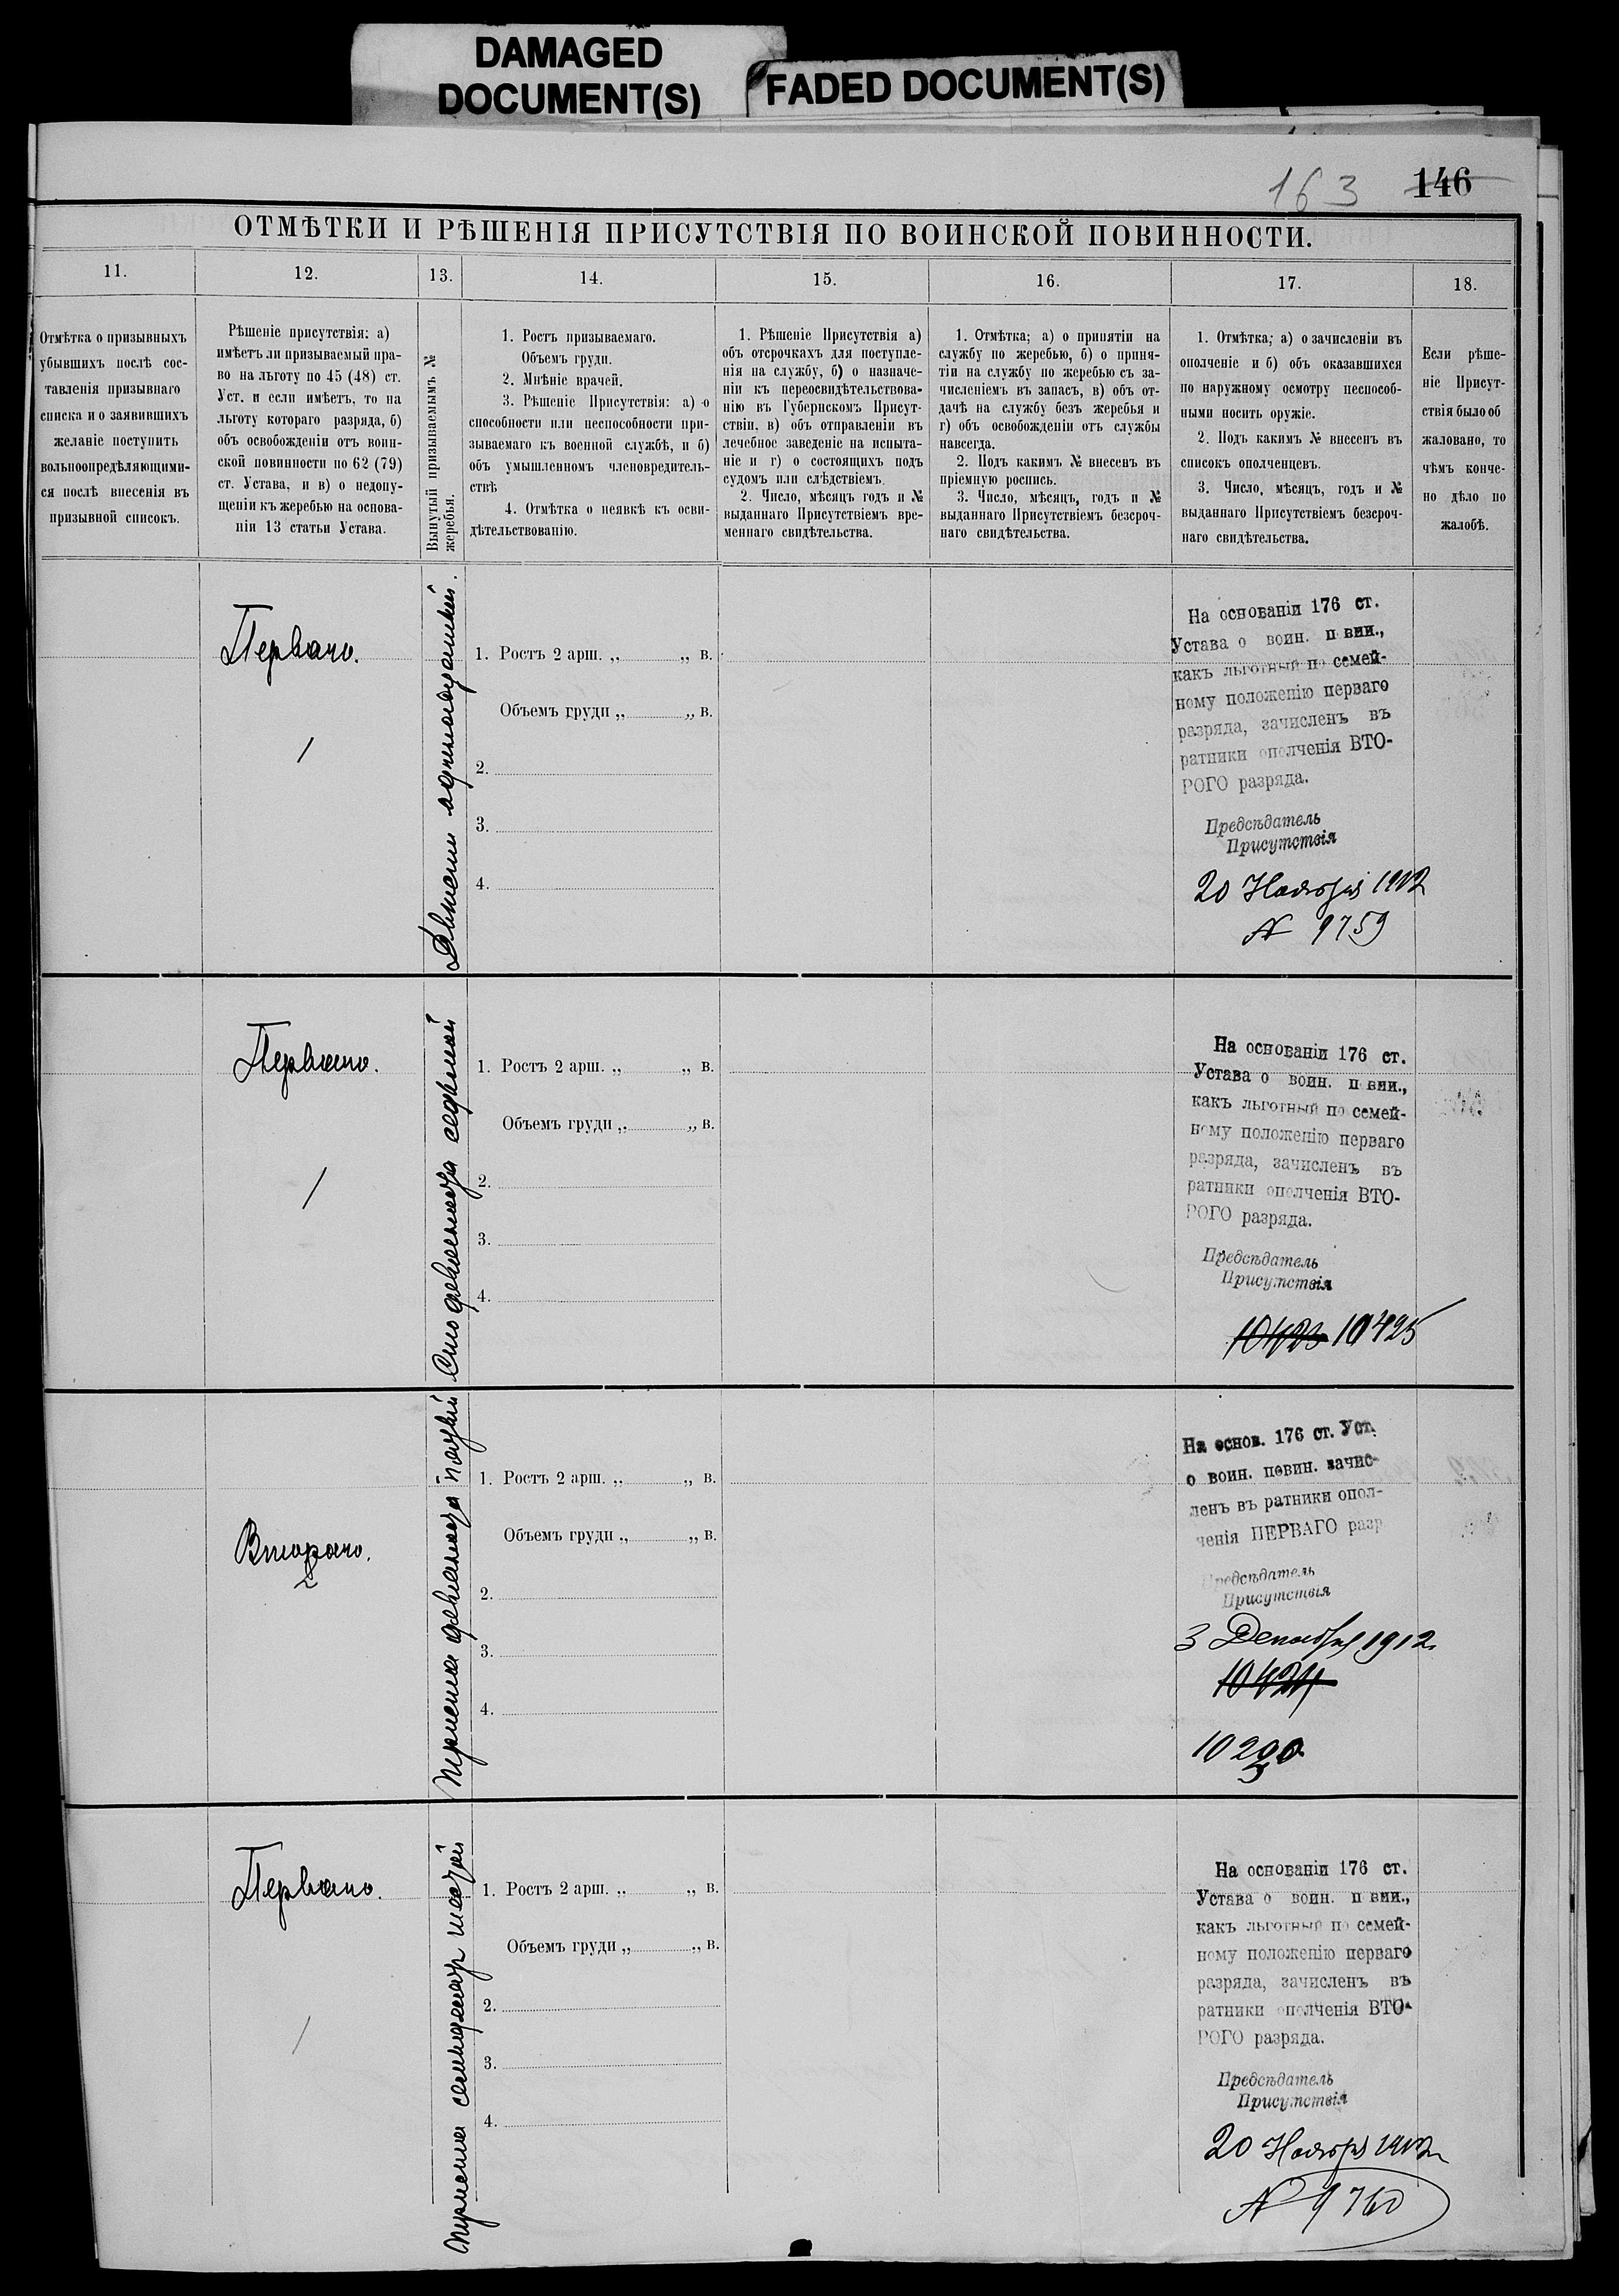 DAMAGED
DOCUMENT(S)
FADED DOCUMENT(S)
163 146
ОТМѢТКИ И РѢШЕНІЯ ПРИСУТСТВІЯ ПО ВОИНСКОЙ ПОВИННОСТИ.
11.
12.
13.
14.
15.
16.
17.
18.
Отмѣтка о призывныхъ
убывшихъ послѣ сос-
тавленія призывнаго
списка и о заявившихъ
желаніе поступить
вольноопредѣляющими-
ся послѣ внесенія въ
призывной списокъ.
Рѣшеніе присутствія: а)
имѣетъ ли призываемый пра-
во на льготу по 45 (48) ст.
Уст. и если имѣетъ, то на
льготу котораго разряда, б)
объ освобожденіи отъ воин-
ской повинности по 62 (79)
ст. Устава, и в) о недопу-
щеніи къ жеребью на основа-
ніи 13 статьи Устава.
Вынутый призываемымъ №
жеребья.
1. Ростъ призываемаго.
Объемъ груди.
2. Мнѣніе врачей.
3. Рѣшеніе Присутствія: а) о
способности или неспособности при-
зываемаго къ военной службѣ, и б)
объ умышленномъ членовредитель-
ствѣ
4. Отмѣтка о неявкѣ къ осви-
дѣтельствованію.
1. Рѣшеніе Присутствія а)
объ отсрочкахъ для поступле-
нія на службу, б) о назначе-
ніи къ переосвидѣтельствова-
нію въ Губернскомъ Присут-
ствіи, в) объ отправленіи въ
лечебное заведеніе на испыта-
ніе и г) о состоящихъ подъ
судомъ или слѣдствіемъ.
2. Число, мѣсяцъ годъ и №
выданнаго Присутствіемъ вре-
меннаго свидѣтельства.
1. Отмѣтка; а) о принятіи на
службу по жеребью, б) о приня-
тіи на службу по жеребью съ за-
численіемъ въ запасъ, в) объ от-
дачѣ на службу безъ жеребья и
г) объ освобожденіи отъ службы
навсегда.
2. Подъ какимъ № внесенъ въ
пріемную роспись.
3. Число, мѣсяцъ, годъ и №
выданнаго Присутствіемъ безсроч-
наго свидѣтельства.
1. Отмѣтка; а) о зачисленіи въ
ополченіе и б) объ оказавшихся
по наружному осмотру неспособ-
ными носить оружіе.
2. Подъ какимъ № внесенъ въ
списокъ ополченцевъ.
3. Число, мѣсяцъ, годъ и №
выданнаго Присутствіемъ безсроч-
наго свидѣтельства.
Если рѣше-
ніе Присут-
ствія было об
жаловано, то
чѣмъ конче-
но дѣло по
жалобѣ.
Перваго.
/
Двѣсти одиннадцатый.
1. Ростъ 2 арш. „ „ в.
Объемъ груди „ „ в.
2.
3.
4.
На основаніи 176 ст.
Устава о воин. повин.,
какъ льготный по семей-
ному положенію перваго
разряда, зачисленъ въ
ратники ополченія ВТО-
РОГО разряда.
Предсѣдатель
Присутствія
20 Ноября 1912
№ 9759
Перваго.
/
Сто девяносто седьмой
1. Ростъ 2 арш. „ „ в.
Объемъ груди „ „ в.
2.
3.
4.
На основаніи 176 ст.
Устава о воин. повин.,
какъ льготный по семей-
ному положенію перваго
разряда, зачисленъ въ
ратники ополченія ВТО-
РОГО разряда.
Предсѣдатель
Присутствія
10423 10425
Второго.
2
Триста девяносто пятый
1. Ростъ 2 арш. „ „ в.
Объемъ груди „ „ в.
2.
3.
4.
На основ. 176 ст. Уст.
о воин. повин. зачис-
ленъ въ ратники опол-
ченія ПЕРВАГО разр
Предсѣдатель
Присутствія
3 Декабря 1912
10424
Перваго.
/
Триста семьдесятъ шестой
1. Ростъ 2 арш. „ „ в.
Объемъ груди „ „ в.
2.
3.
4.
На основаніи 176 ст.
Устава о воин. повин.,
какъ льготный по семей-
ному положенію перваго
разряда, зачисленъ въ
ратники ополченія ВТО-
РОГО разряда.
Предсѣдатель
Присутствія
20 Ноября 1912
№ 9760